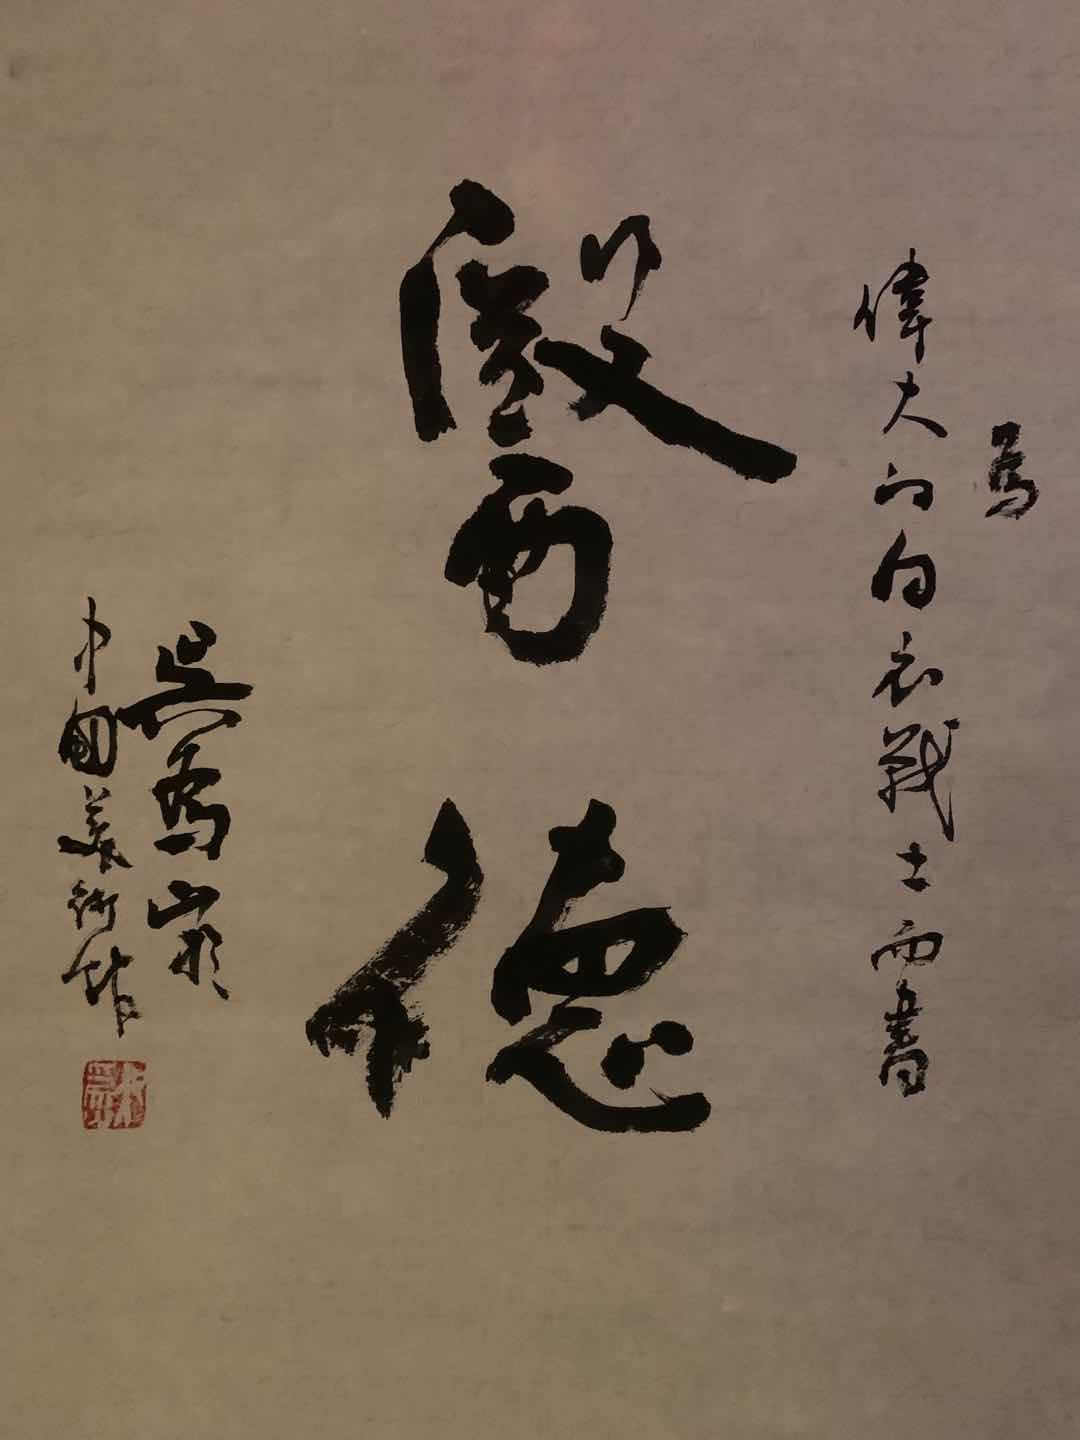 為
偉大的白衣戰士而書
醫德
吳為山
中國美術館